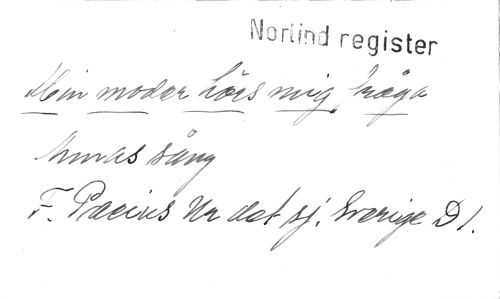 Norlind register
Min moder hörs mig fråga
Annas sång
F. Pacius Ur det sj. Sverige D 1.